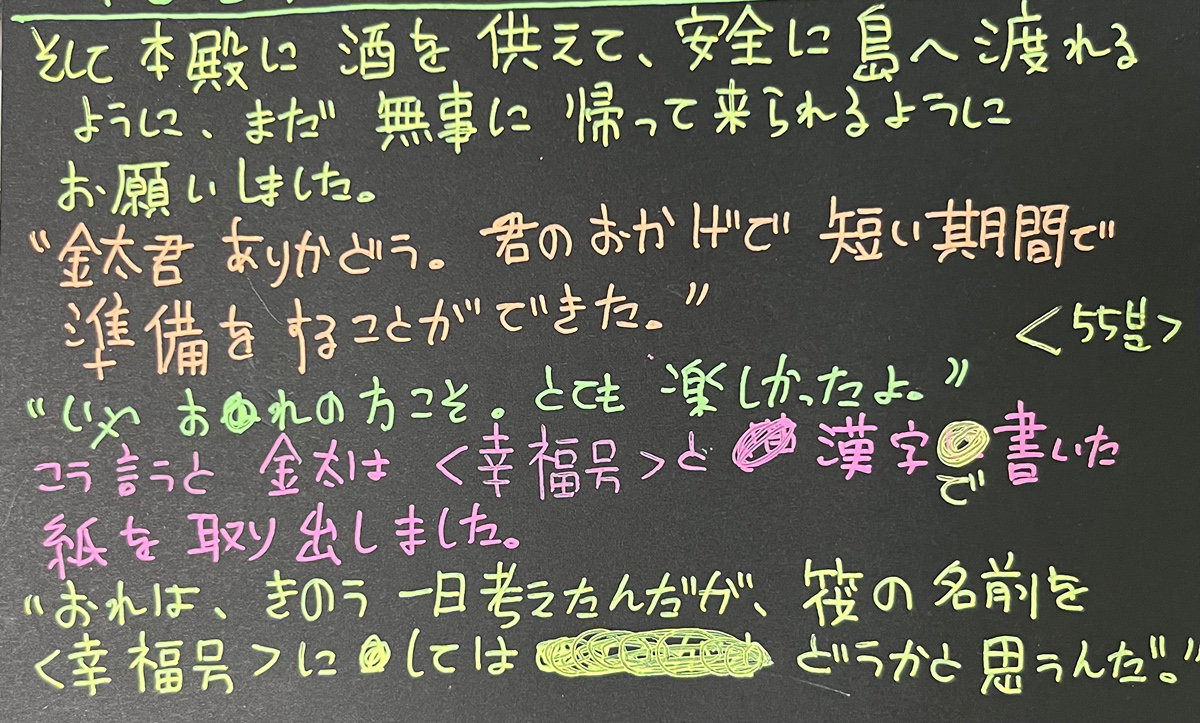 そして本殿に 酒を 供えて、安全に島へ渡れる
ように、まだ 無事に 帰って来られるように
お願いしました。
“金太君 ありかどう。君のおかげで 短い期間で
準備をすることができた。”
<55분>
“いや おれの方こそ。とても 楽しかったよ。”
コラ言うと 金太は <幸福号>と 漢字で書いた
紙を取り出しました。
“おれは、きのう 一日考えたんだが、筏の名前を
<幸福号>に しては どうかと思うんだ。”